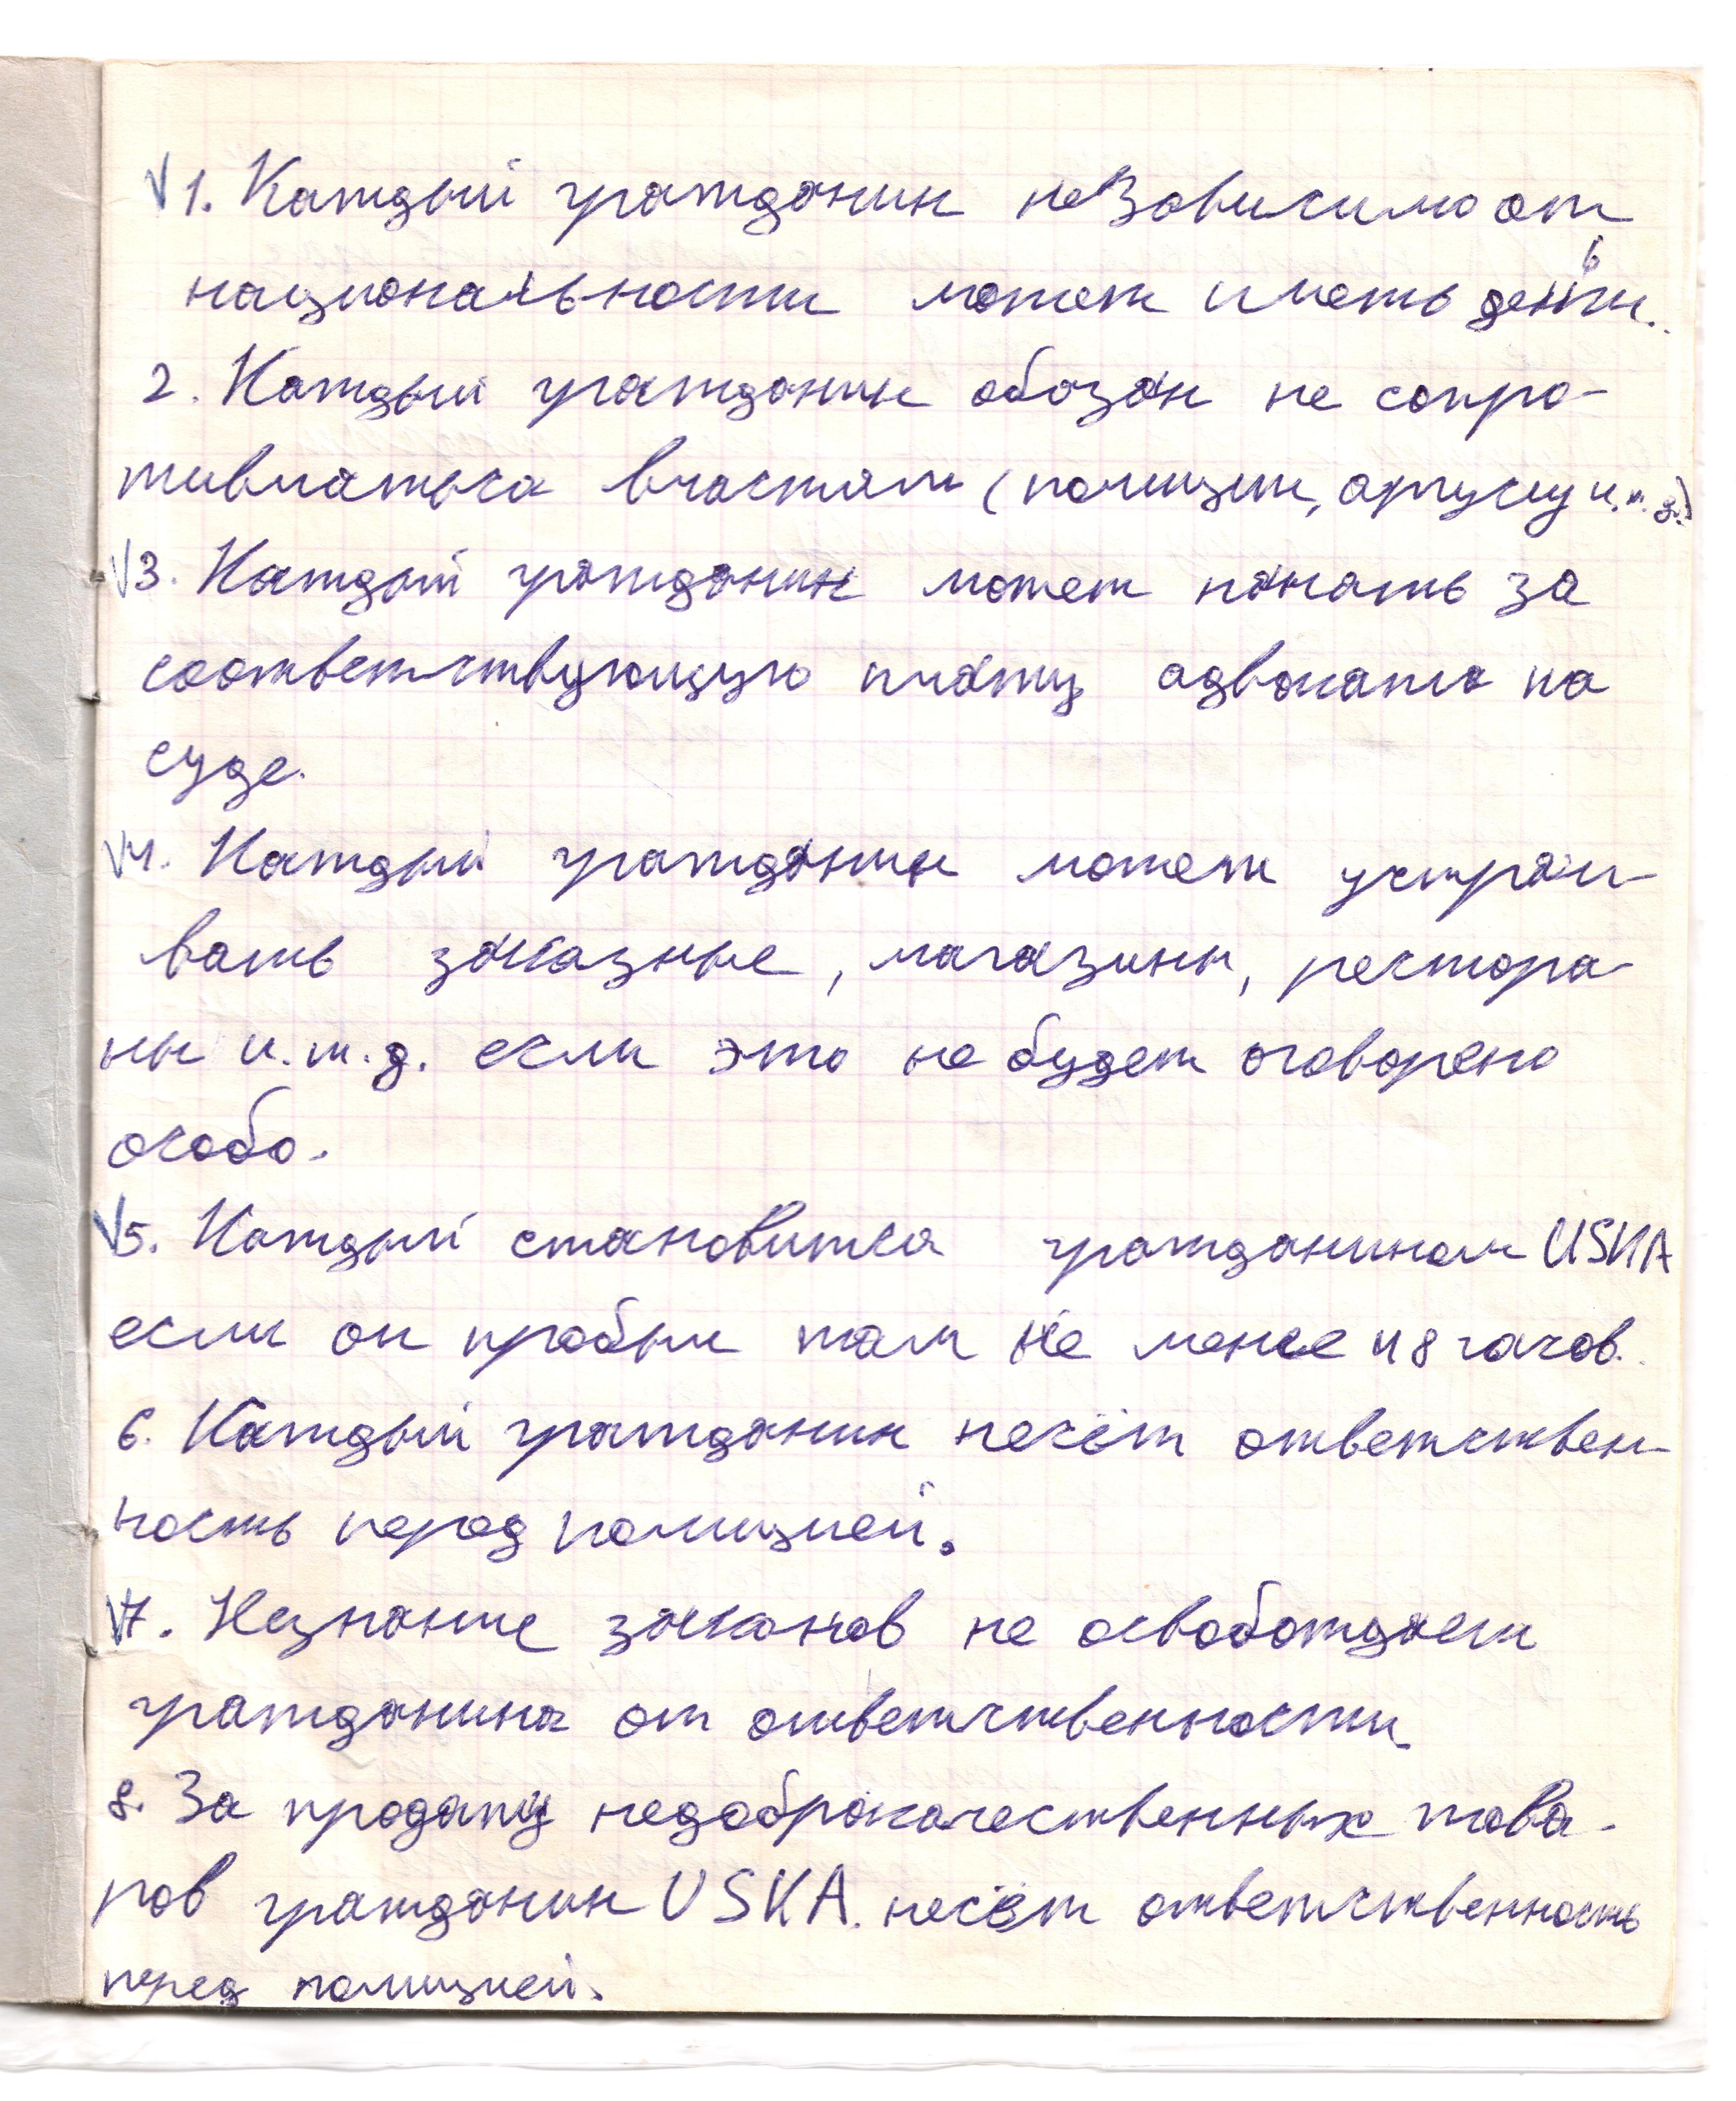 √1. Каждый гражданин независимо от
национальности может иметь деньги.
2. Каждый гражданин обязан не сопро-
тивляться властям (полиции, аргусу и.т.д.)
√3. Каждый гражданин может нанять за
соответствующую плату адвоката на
суде.
√4. Каждый гражданин может устраи-
вать заказные, магазины, рестора-
ны и.т.д. если это не будет оговорено
особо.
√5. Каждый становится гражданином USKA
если он пробыл там не менее 48 часов.
6. Каждый гражданин несёт ответствен-
ность перед полицией.
√7. Незнание законов не освобождает
гражданина от ответственности.
8. За продажу недоброкачественных това-
ров гражданин USKA. несёт ответственность
перед полицией.